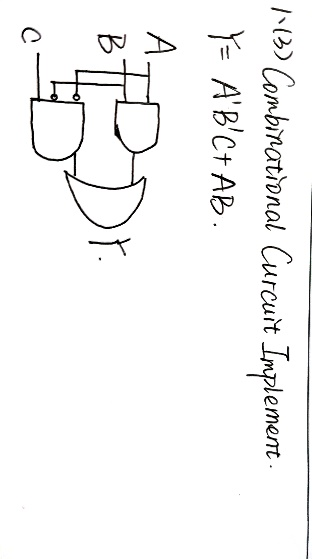 1.(3) Combinational Curcuit Implement.
Y = A'B'C + AB.
A
B
C
Y.